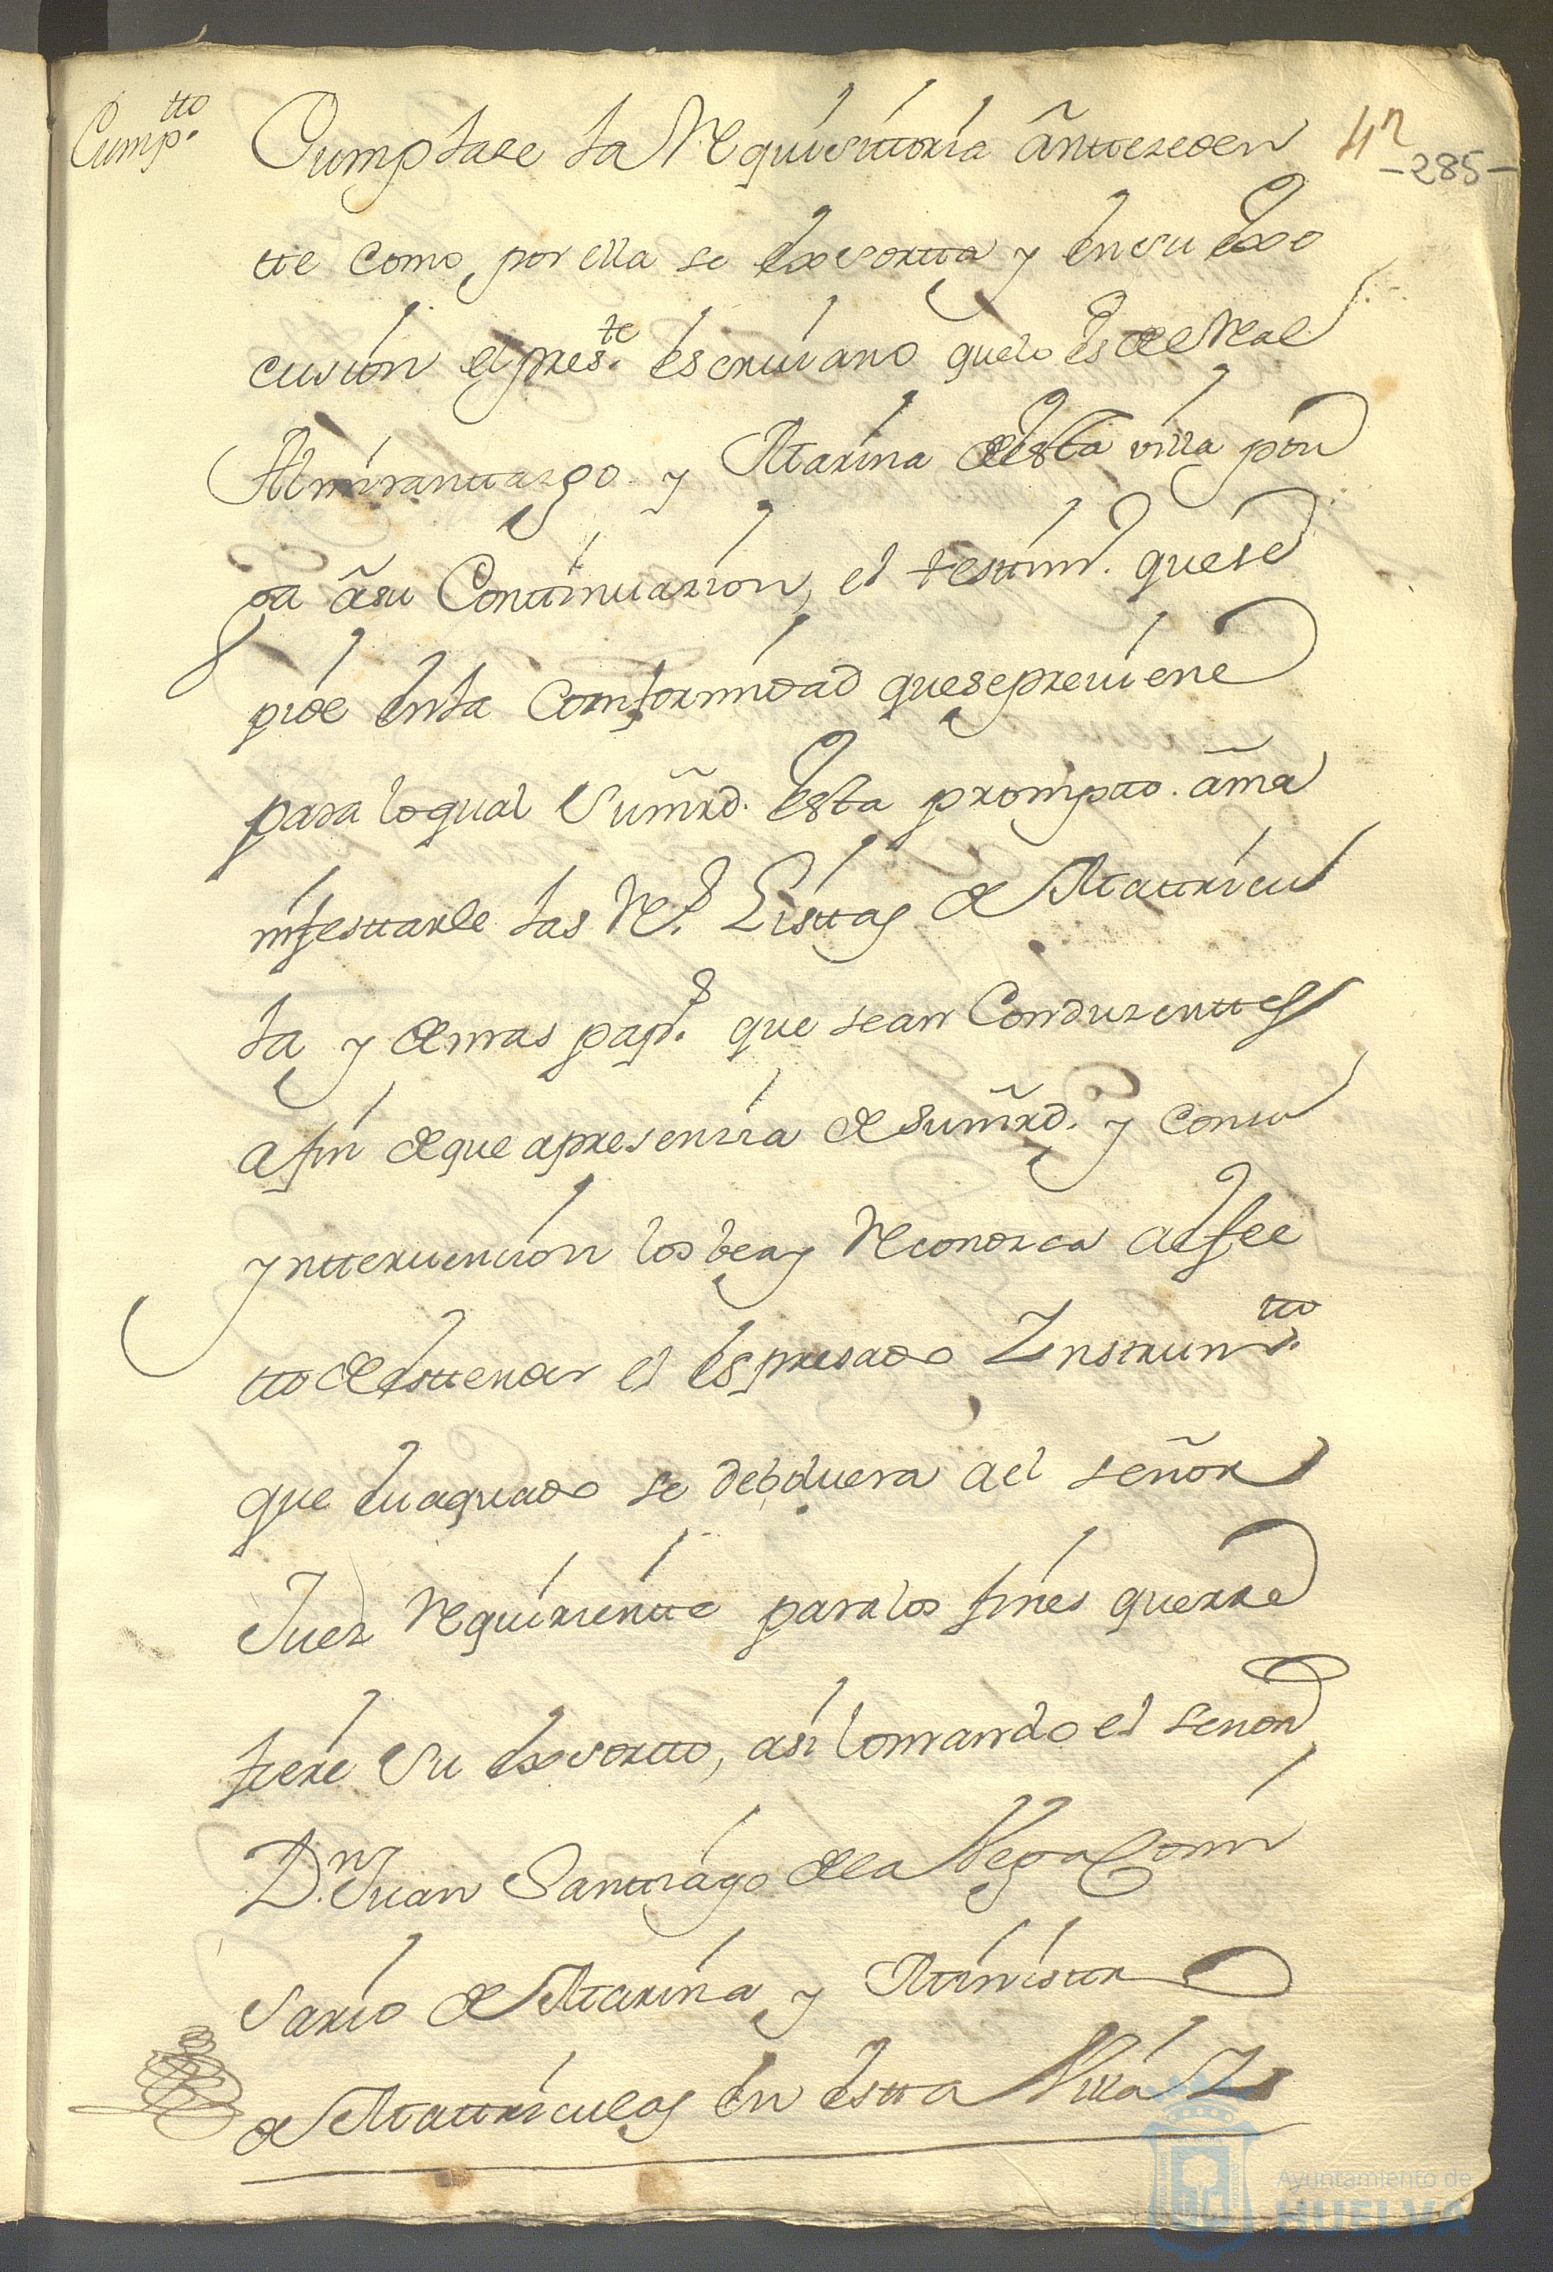 Cump.tto
Cumplase la Requisittoria antteceden
42
-285-
tte como por ella se Exsortta y en su Exe
cusion el pres.te Escriuano que lo es de el Real
Almiranttazgo y Marina de Esta villa pon
ga a su Conttinuazion, el testim.o que se
pide en la Conformidad que se preuiene
para lo qual Su mrd. Esta prompto. a ma
nifesttarle las R.s Listtas de Mattricu
la y demas pap.s que sean Conduzenttes
a fin de que a presenzia de su mrd. y con su
ynttervencion los bea y Reconozca a efec
tto de esttender el espresado Instrum.tto
que Euaquado se deboluera a el señor
Juez Requirientte para los fines que rre
fiere su Exsortto, asi lo mando el señor
D.n Juan Santtiago de la Vega Comi
sario de Marina y Ministtro
de Mattriculas en estta Villa
Ayuntamiento de
HUELVA